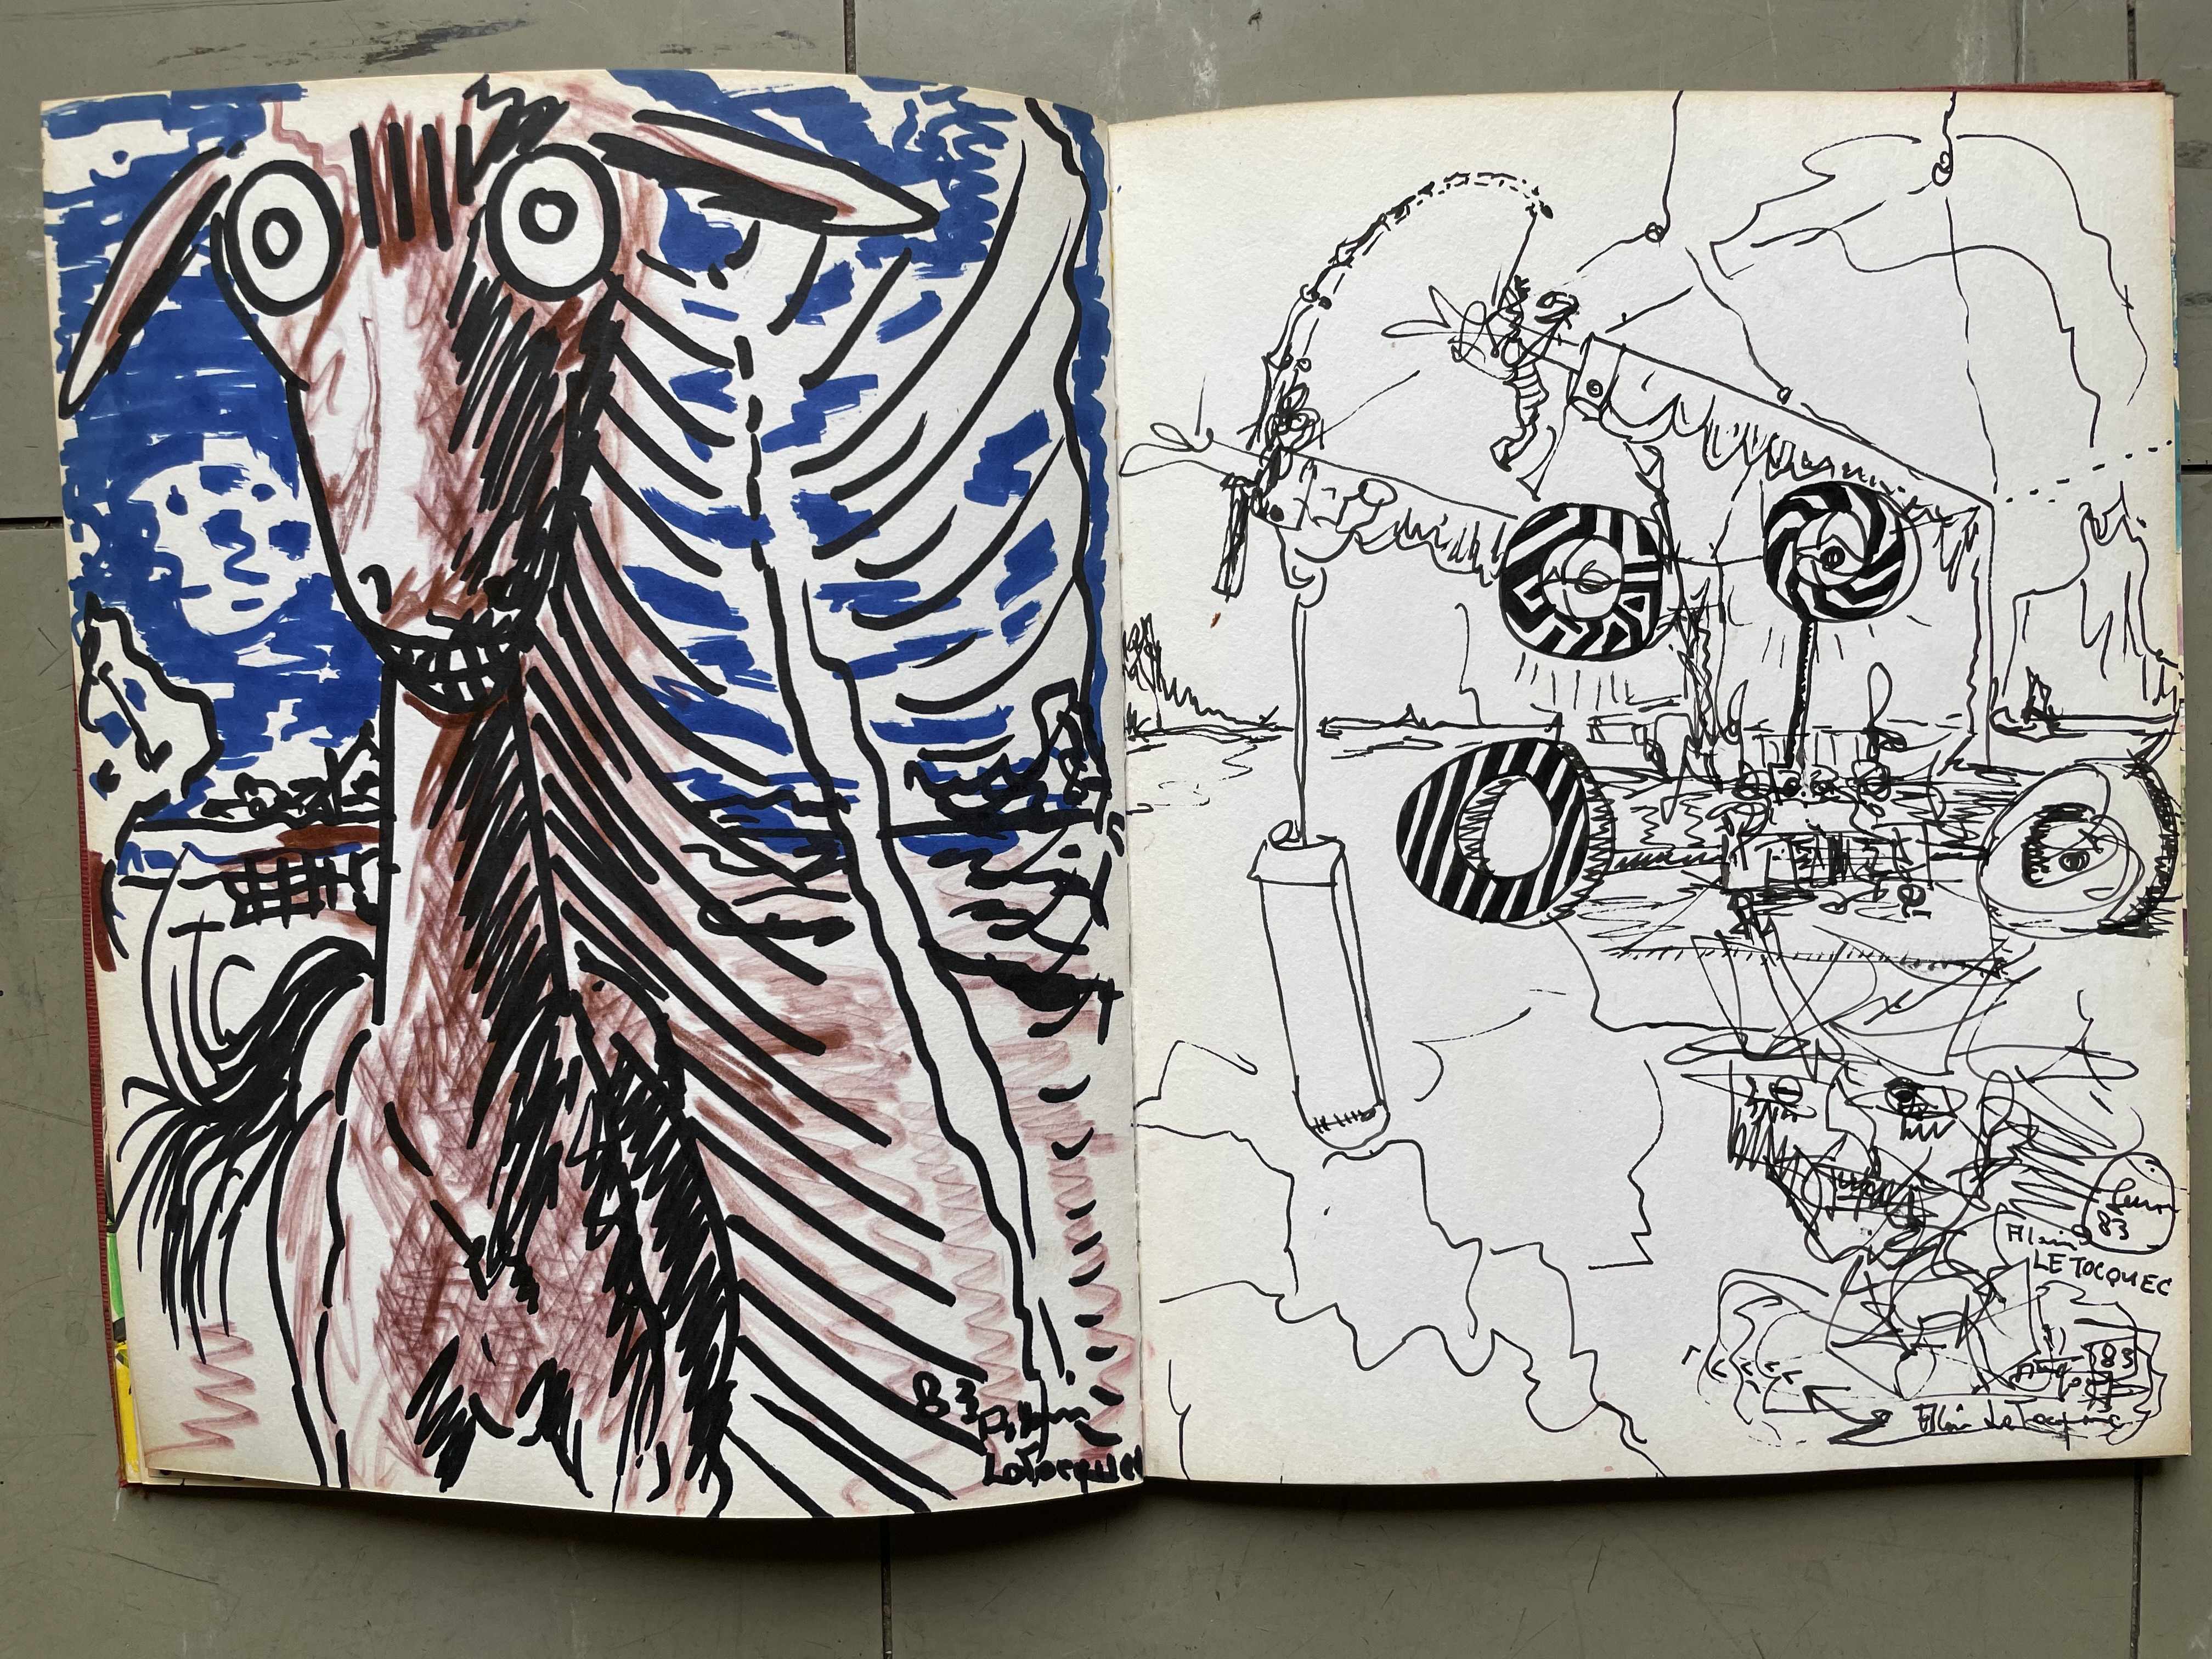 83
Alain
LeTocquec
83
Alain
LE TOCQUEC
83
Alain Le Tocquec